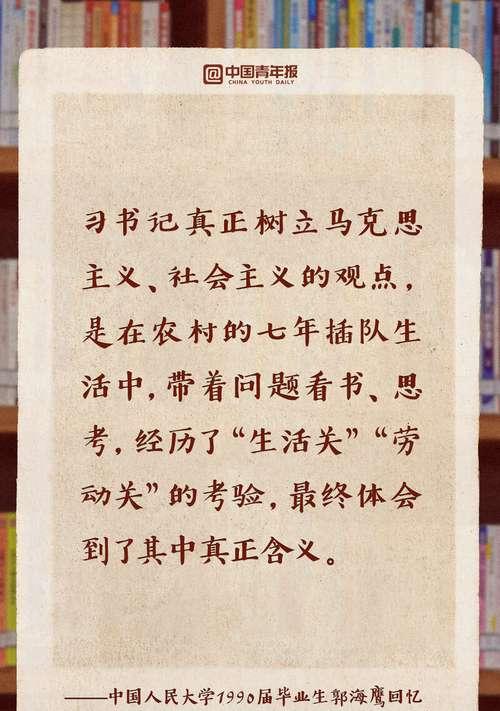 @中国青年报
CHINA YOUTH DAILY
习书记真正树立马克思
主义、社会主义的观点，
是在农村的七年插队生
活中，带着问题看书、思
考，经历了“生活关”“劳
动关”的考验，最终体会
到了其中真正含义。
——中国人民大学1990届毕业生郭海鹰回忆